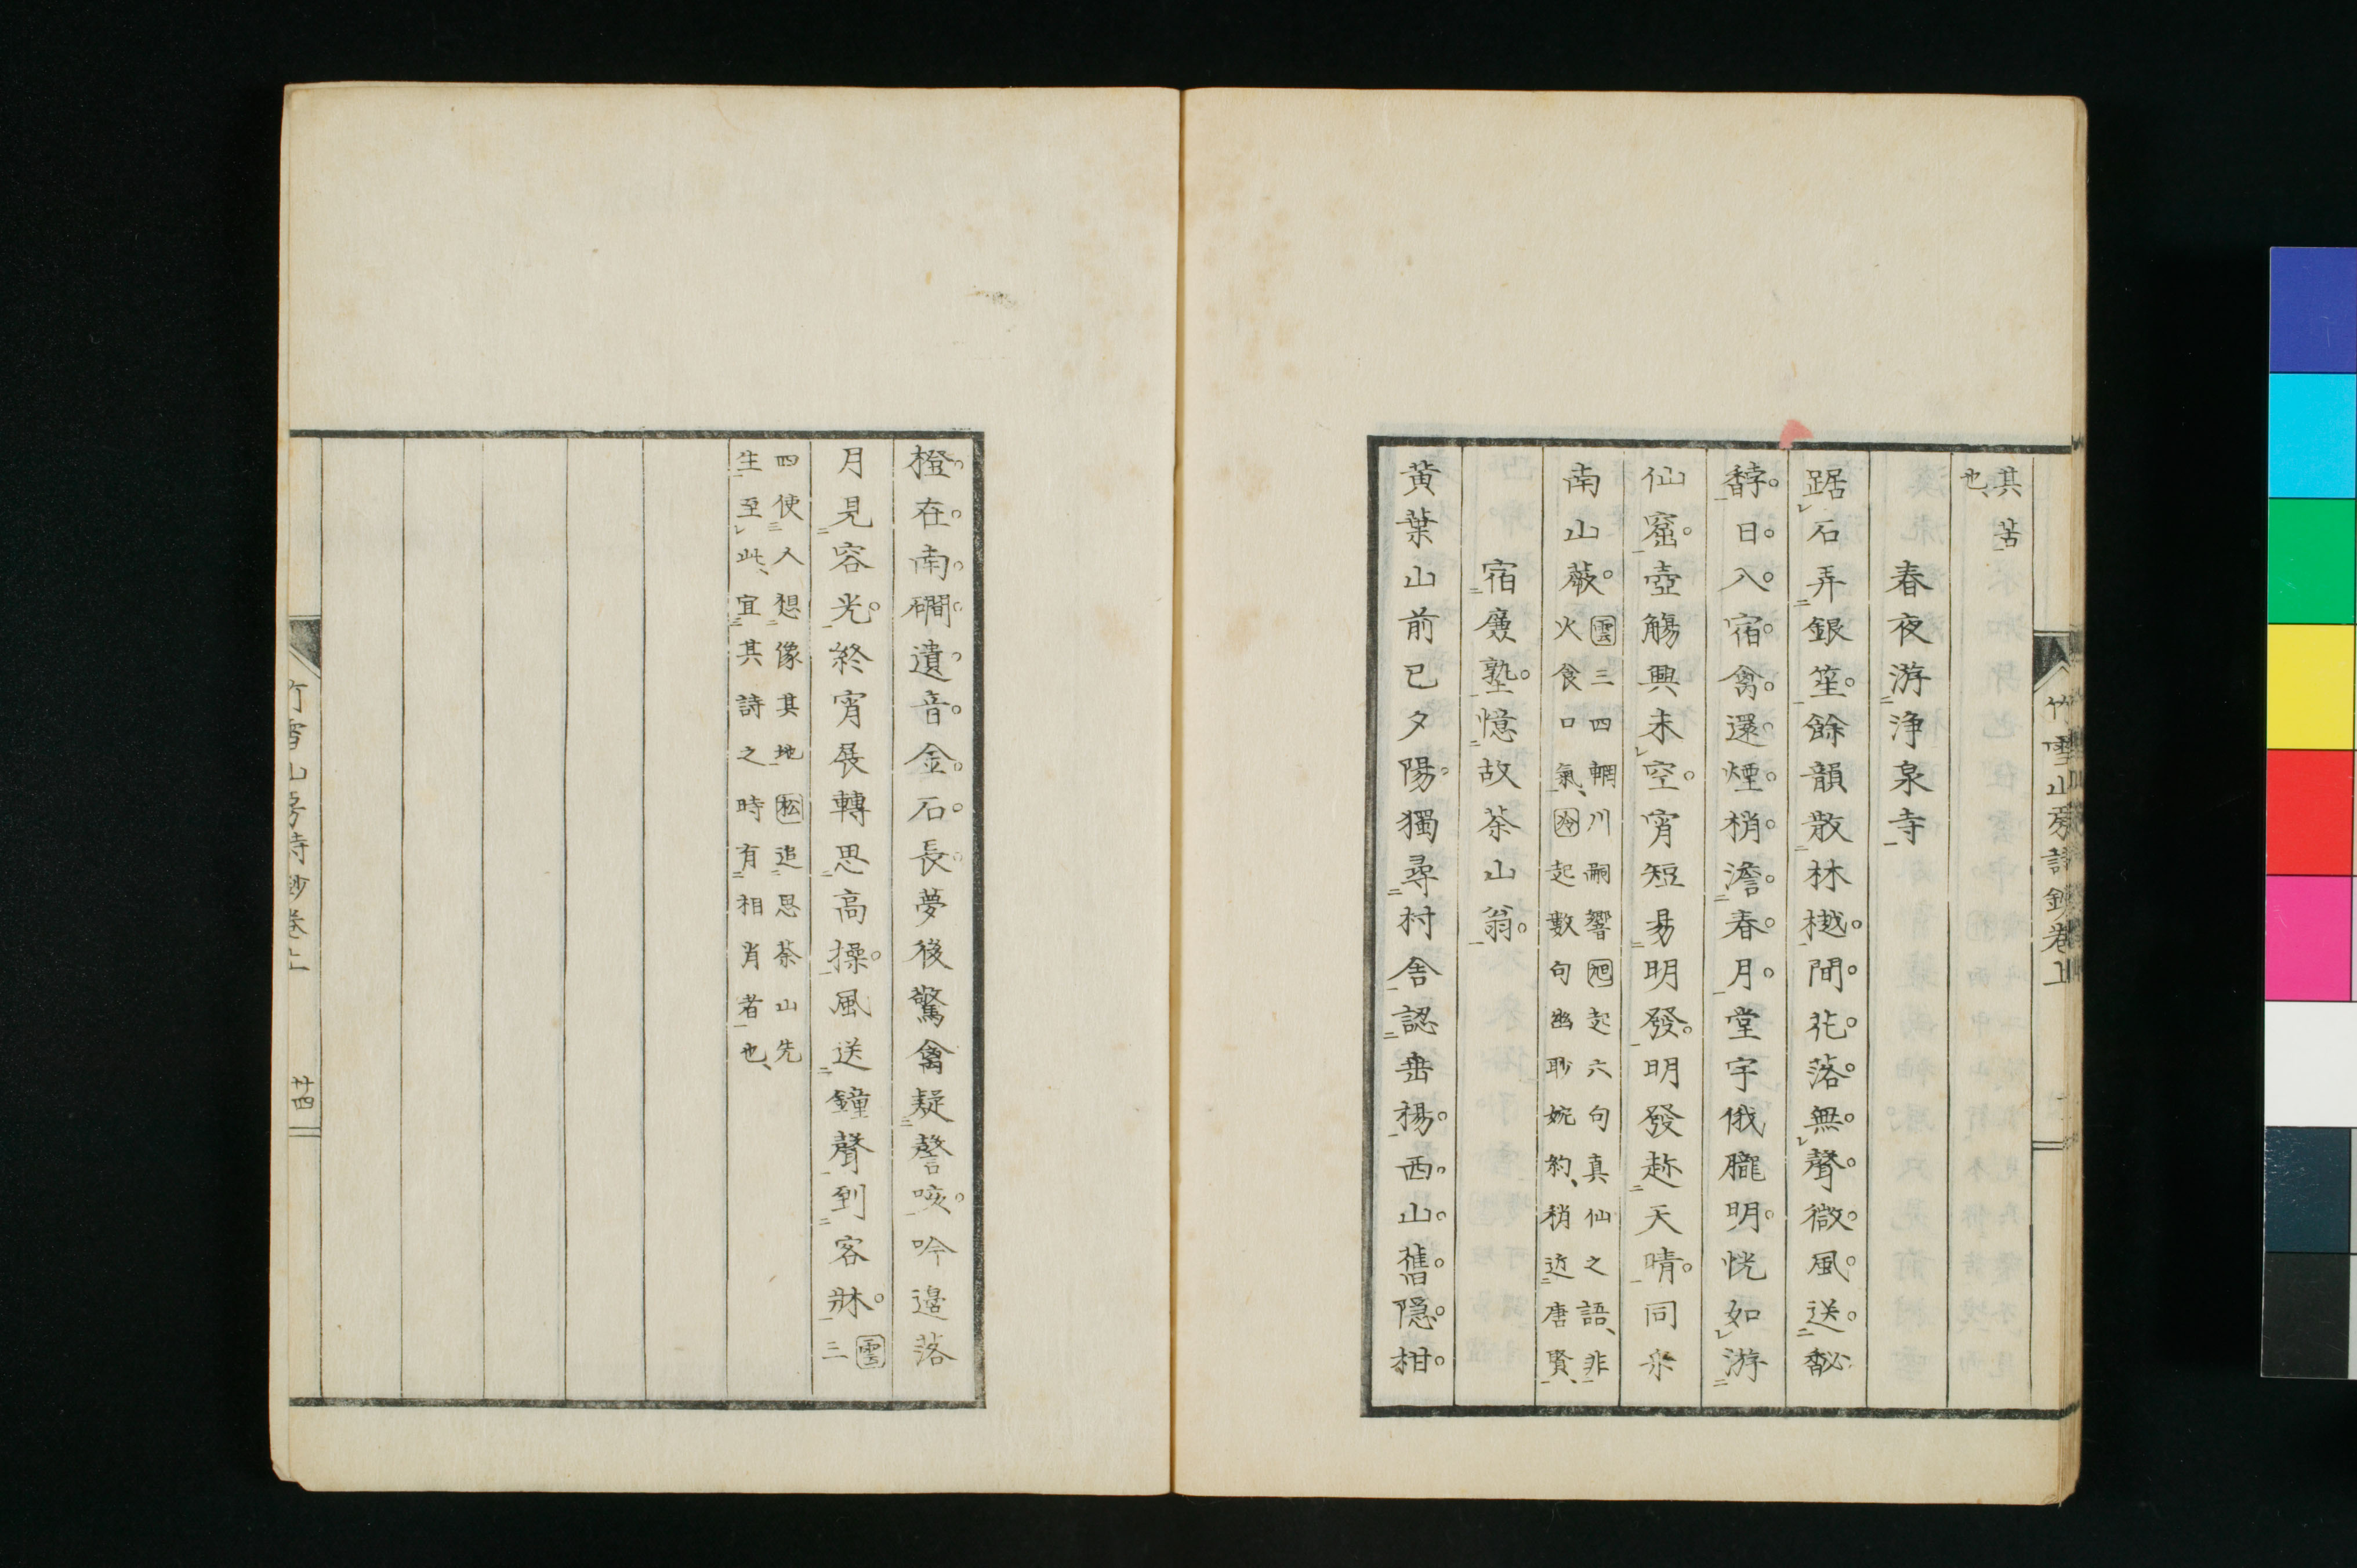 竹雪山房詩鈔卷上
其苦
也、
春夜游浄泉寺
踞石弄銀笙。餘韻散林樾。間花落無聲。微風送馝
馞。日入宿禽還。煙梢澹春月。堂宇俄朧明。恍如游
仙窟。壺觴興未空。宵短易明發。明發趂天晴。同采
南山薇。
雲三四輞川嗣響旭起六句真仙之語、非
火食口氣、冷起數句幽眇婉約、稍近唐賢、
宿廣塾。憶故茶山翁。
黃葉山前已夕陽。獨尋村舍認垂楊。西山舊隱柑
橙在。南磵遺音金石長。夢後驚禽疑謦咳。吟邊落
月見容光。終宵展轉思高操。風送鐘聲到客牀。雲三
四使人想像其地松追思茶山先
生至此、宜其詩之時有相肖者也、
竹雪山房詩鈔卷上
廿四